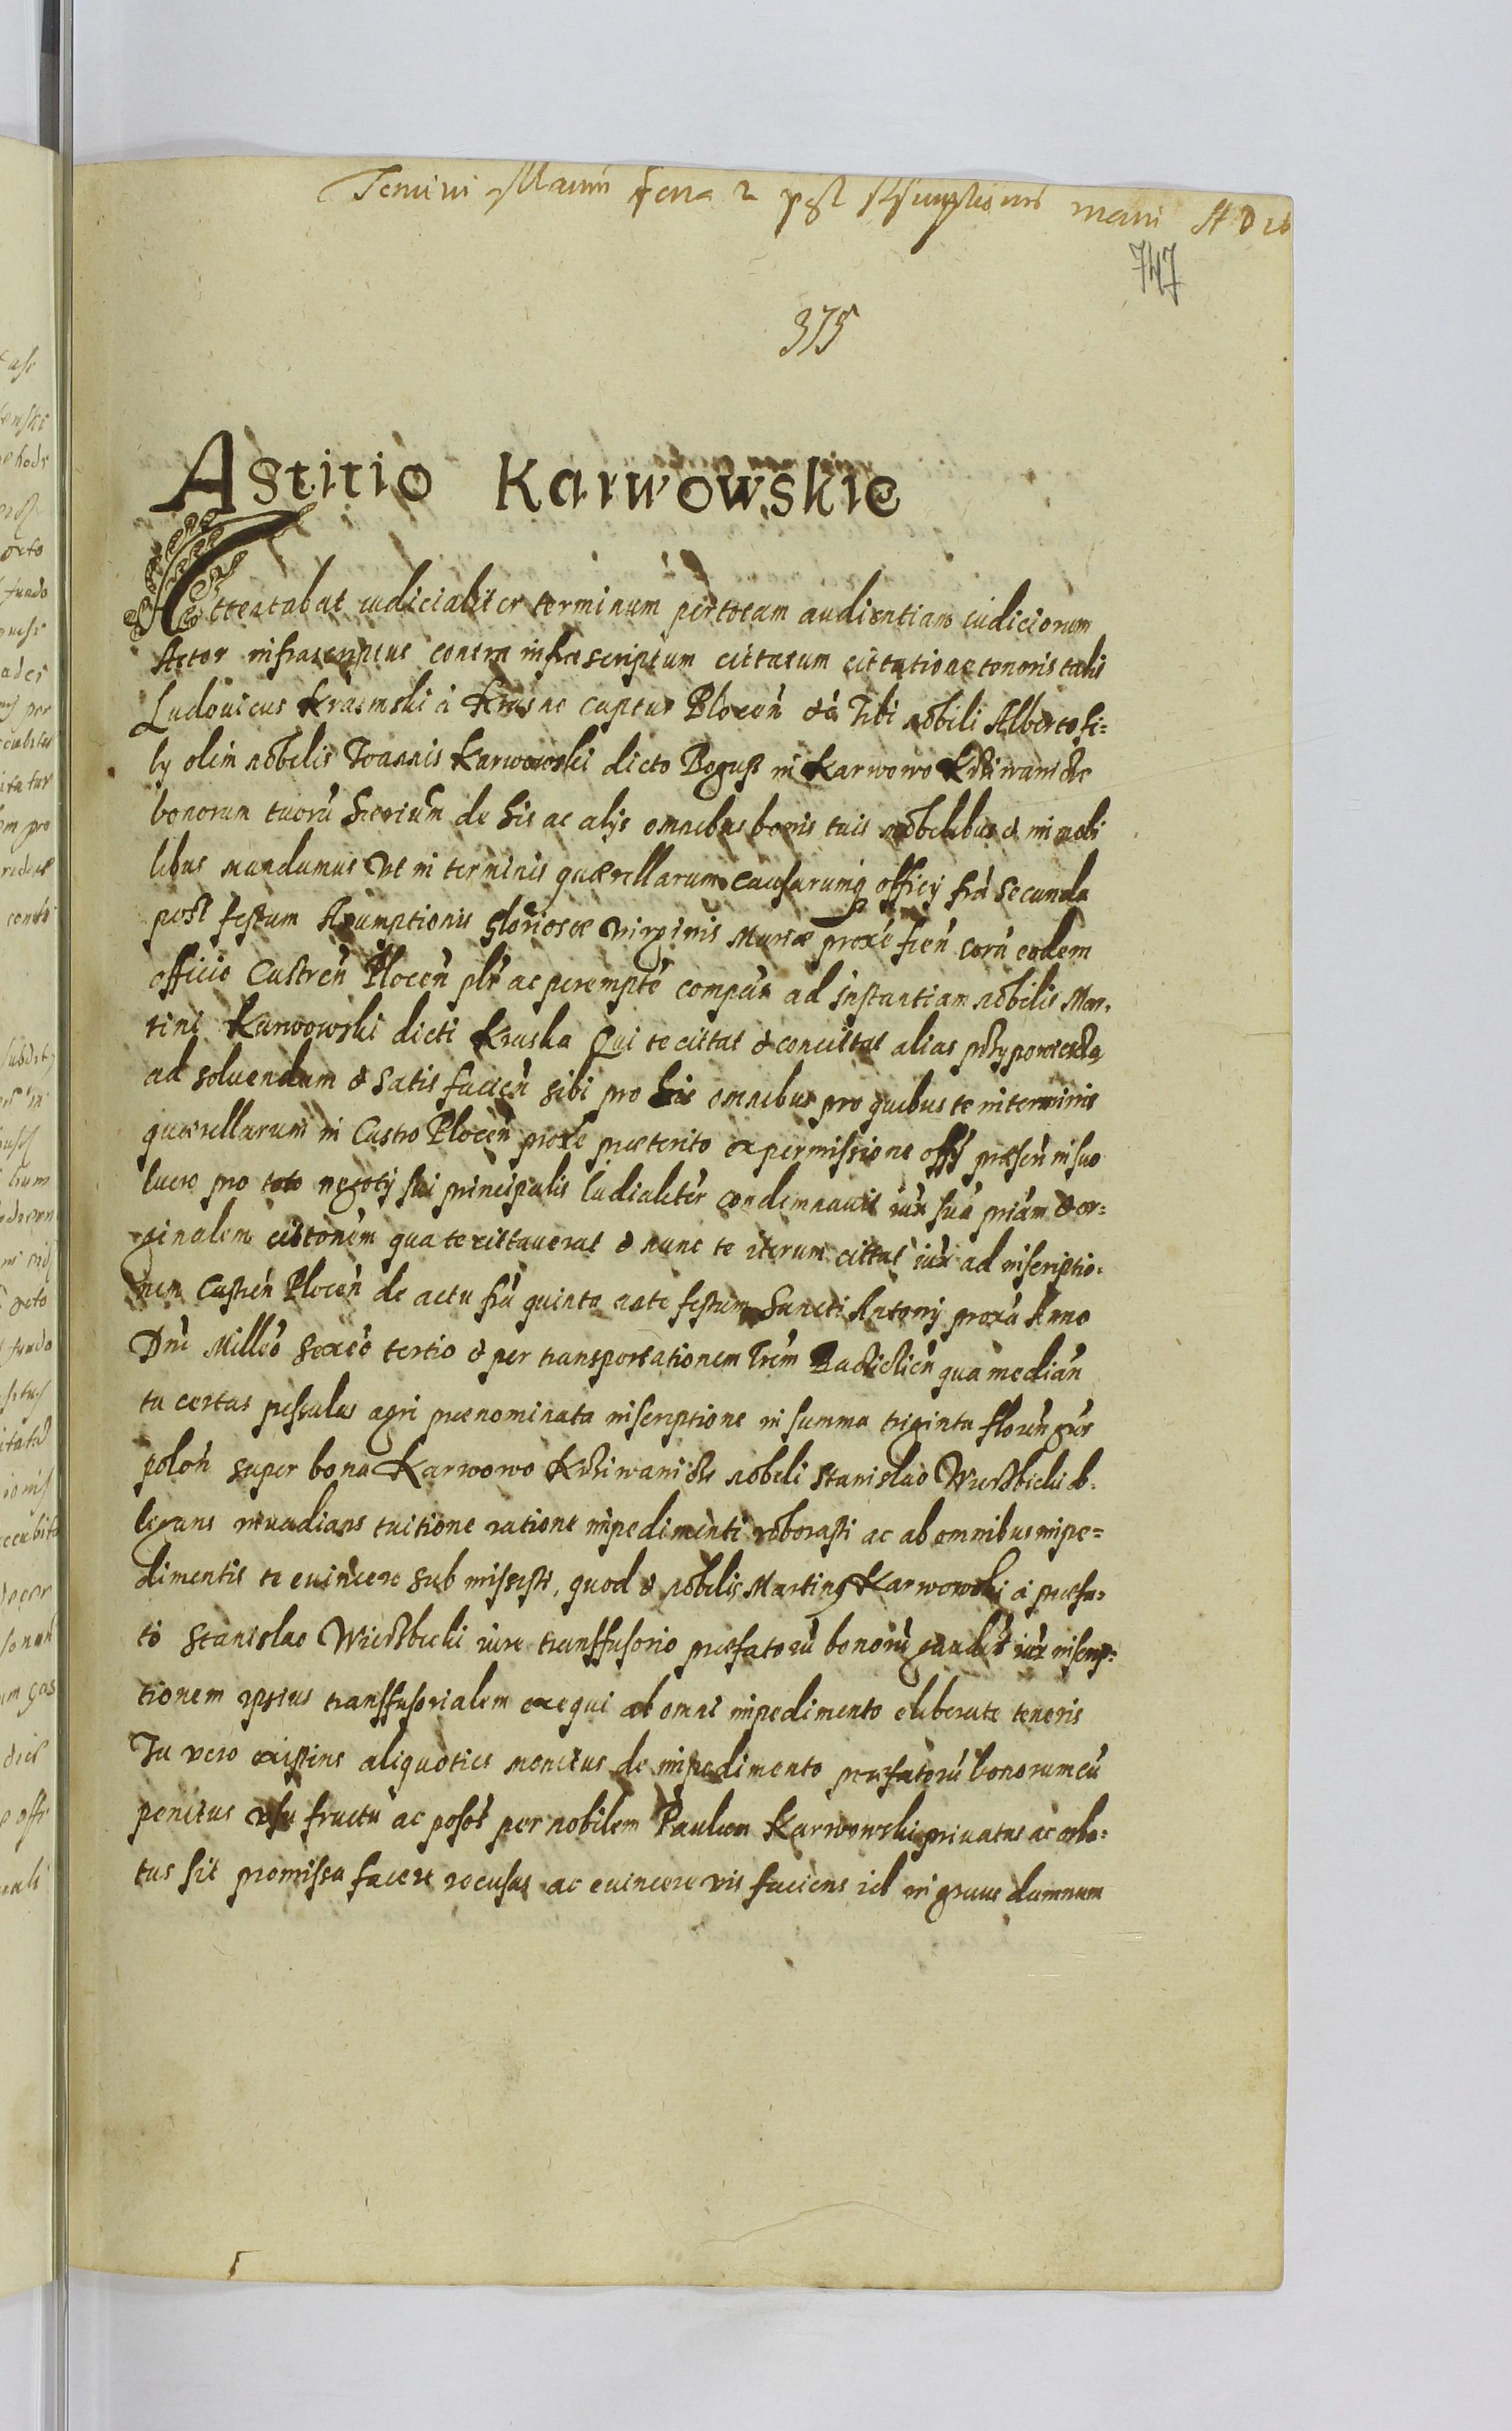 Termini Mazoui feria 2 post Assumptionis Mariæ A D 16
747
375
Astitio Karwowskie
Attentabat iudicialiter terminum per totam audientiam iudiciorum
Actor infrascriptus contra infrascriptum cittatum cittatione tenoris talis
Ludouicus Krasinski à Krasne captus Plocen̄ & à Tibi nobili Alberto fi=
ly olim nobilis Joannis Karwowski dicto Boguss in Karwowo Krziwanicze
bonorum tuorū hærium de his ac alijs omnibus bonis tuis mobilibus & immobi
libus mandamus Vt in terminis quærellarum causarumq officij frā secunda
post festum Assumptionis gloriosæ virginis Mariæ proxe fien̄ corā eodem
officio Castren̄ Plocen̄ plr ac perempte compas ad instantiam nobilis Mar.
tini Karwowski dicti Kraska Qui te cittat & concittat alias przypowiesta
ad soluendum & satis facien̄ sibi pro his omnibus pro quibus te in terminis
quærellarum in Castro Plocen̄ proxe præterito ex permissione offy præsen̄ in suo
lucro pro toto negotij sui principalis iudialiter condemnauit iux suā priām & or=
ginalem cittonem qua te cittauerat & nunc te iterum cittat iux ad inscriptio=
nem Castren̄ Plocen̄ de actu frā quinta ante festum Sancti Antonij proxa Anno
Dni Milleo sexceo tertio & per transportationem Trem Radzielicn̄ qua median̄
tu certas pessulas agri prænominata inscriptione in summa triginta floren̄ gur
polon̄ super bona Karwowo Krziwanicze nobili Stanislao Wierzbicki ob.
ligans inuadians tuitione ratione impedimenti roborasti ac ab omnibus impe=
dimentis te euincere sub misisti, quod & nobilis Martinq Karwowski à præfa=
to Stanislao Wierzbicki iure transfusorio præfatorū bonorū gaudet iux inscrip=
tionem ipsius transfusorialem exequi ab omni impedimento eliberate teneris
Tu vero existens aliquoties monitus de impedimento præfatorū bonorum cū
penitus vsu fructu ac posset per nobilem Paulum Karwowski priuatus ac orba=
tus sit promissa facere recusas ac euincere vis faciens id in graue damnum